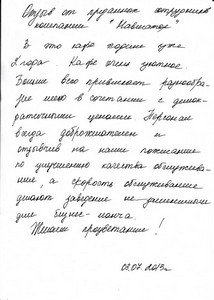 Отзыв от преданных сотрудников
компании "Навигатор"
В это кафе ходим уже
2 года. Кафе очень уютное.
Больше всего привлекает разнообра-
зие меню в сочетании с демок-
ратичными ценами. Персонал
всегда доброжелателен и
отзывчив на наши пожелания
по улучшению качества обслужива-
ния, а скорость обслуживания
делают заведение не заменимыми
для бизнес-ланча.
Желаем процветания!
03.07.2013г.